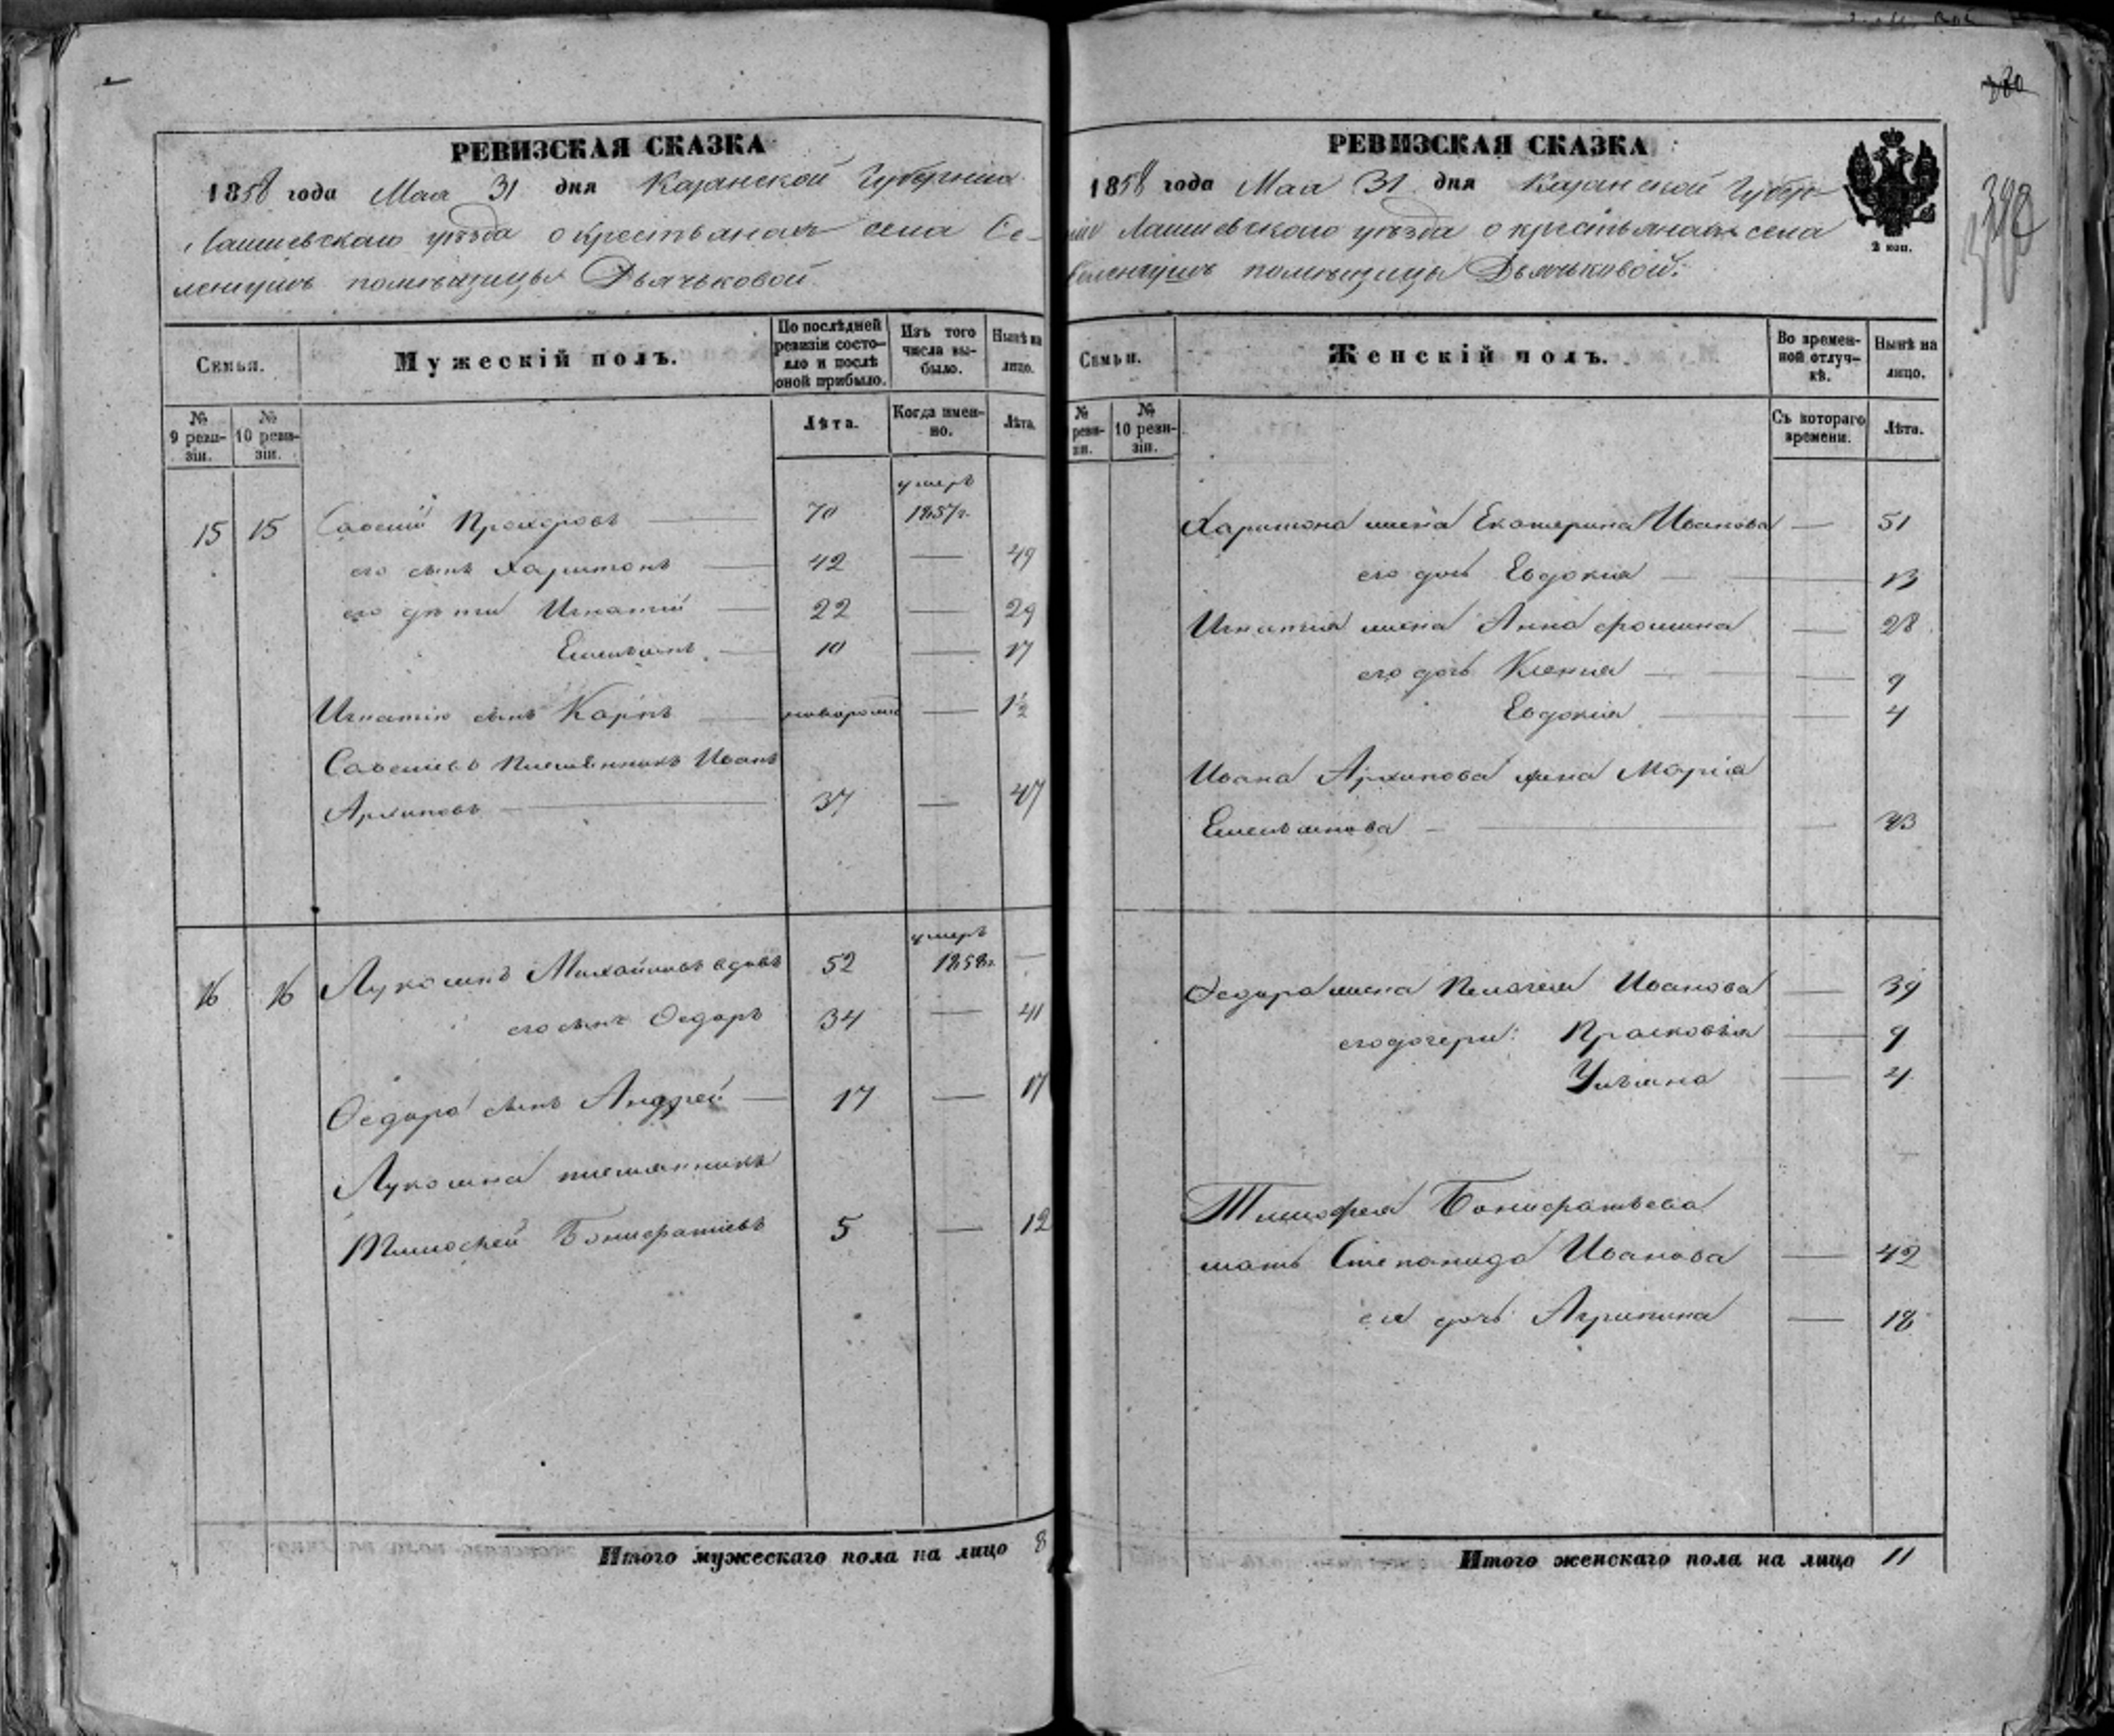 РЕВИЗСКАЯ СКАЗКА
1858 года Мая 31 дня Казанской Губерніи
Лаишевскаго уѣзда о крестьянахъ села Се-
ленгушъ помѣщицы Дьячьковой
Семья.
Мужескій полъ.
По послѣдней ревизіи состо-яло и послѣ оной прибыло.
Изъ того числа вы-было.
Нынѣ на лицо.
№ 9 реви-зіи.
№ 10 реви-зіи.
Лѣта.
Когда имен-но.
Лѣта.
умеръ
15 15 Савелій Прохоровъ 70 1857г.
его сынъ Харитонъ 42 49
его дѣти Игнатій 22 29
Емельянъ 10 17
Игнатія сынъ Карпъ новорожд 1½
Савельевъ племянникъ Иванъ
Архиповъ 37 47
умеръ
16 16 Лукоянъ Михайловъ вдовъ 52 1858г.
его сынъ Ѳедоръ 34 41
Ѳедора сынъ Андрей 17 17
Лукояна племянникъ
Тимофей Бонифатіевъ 5 12
Итого мужескаго пола на лицо 8
РЕВИЗСКАЯ СКАЗКА
2 коп.
1858 года Мая 31 дня Казанской Губер-
ніи Лаишевскаго уѣзда о крестьянахъ села
Селенгушъ помѣщицы Дьячьковой.
Семьи.
Женскій полъ.
Во времен-ной отлуч-кѣ.
Нынѣ на лицо.
№ реви-зіи.
№ 10 реви-зіи.
Съ котораго времени.
Лѣта.
Харитона жена Екатерина Иванова 51
его дочь Евдокія 13
Игнатія жена Анна Фомина 28
его дочь Ксенія 9
Евдокія 4
Ивана Архипова жена Марія
Емельянова 43
Ѳедора жена Пелагея Иванова 39
его дочери: Прасковья 9
Ульяна 4
Тимофея Бонифатьева
мать Степанида Иванова 42
ея дочь Агрипина 18
Итого женскаго пола на лицо 11